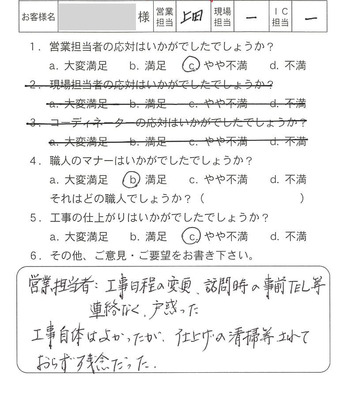 お客様名 様 営業担当 上田 現場担当 ー IC担当 ー
1. 営業担当者の応対はいかがでしたでしょうか？
a. 大変満足 b. 満足 c. やや不満 d. 不満
2. 現場担当者の応対はいかがでしたでしょうか？
a. 大変満足 b. 満足 c. やや不満 d. 不満
3. コーディネーターの応対はいかがでしたでしょうか？
a. 大変満足 b. 満足 c. やや不満 d. 不満
4. 職人のマナーはいかがでしたでしょうか？
a. 大変満足 b. 満足 c. やや不満 d. 不満
それはどの職人でしょうか？（ ）
5. 工事の仕上がりはいかがでしたでしょうか？
a. 大変満足 b. 満足 c. やや不満 d. 不満
6. その他、ご意見・ご要望をお書き下さい。
営業担当者：工事日程の変更、訪問時の事前TEL等
連絡なく、戸惑った
工事自体はよかったが、仕上げの清掃等されて
おらず残念だった.